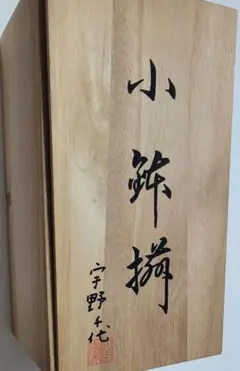 小鉢揃
宇野千代